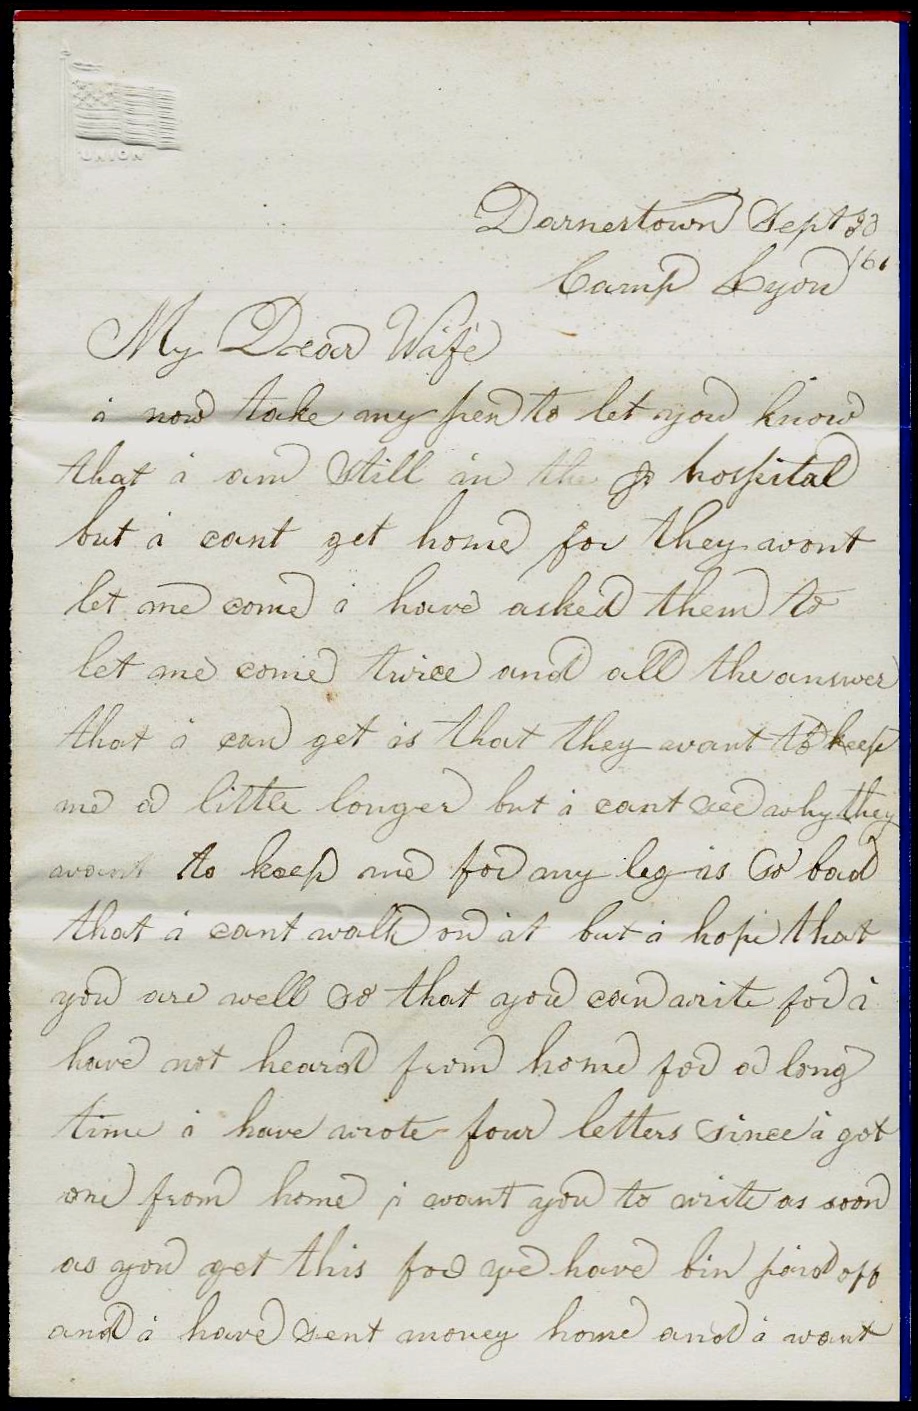 UNION
Darnestown Sept 30
Camp Lyon /61
My Dear Wife
i now take my pen to let you know
that i am still in the hospital
but i cant get home for they wont
let me come i have asked them to
let me come twice and all the answer
that i can get is that they want to keep
me a little longer but i cant see why they
want to keep me for my leg is so bad
that i cant walk on it but i hope that
you are well so that you can write for i
have not heard from home for a long
time i have wrote four letters since i got
one from home i want you to write as soon
as you get this for we have bin paid off
and i have sent money home and i want